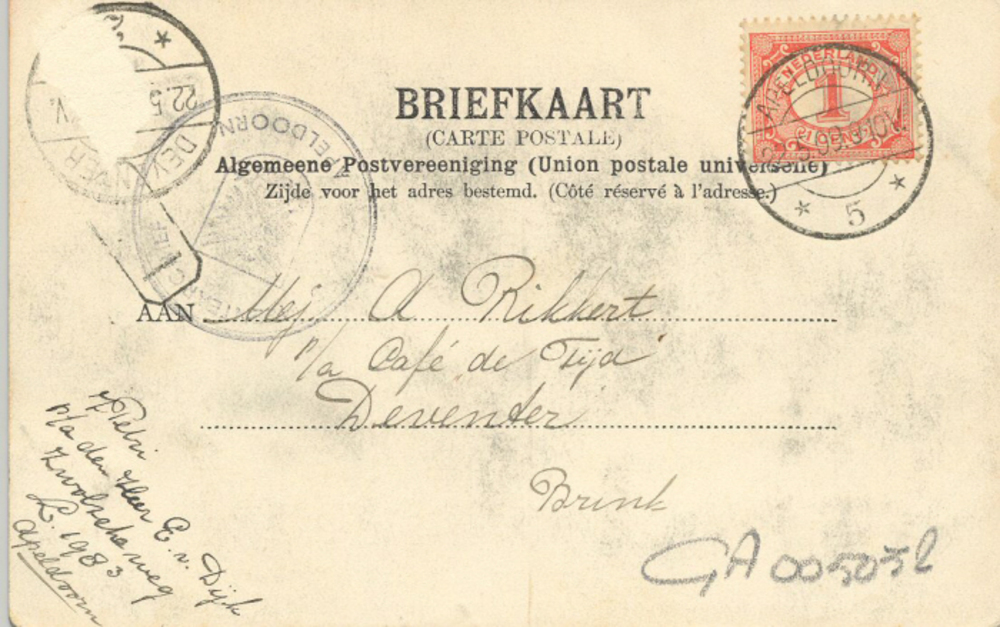 BRIEFKAART
(CARTE POSTALE)
Algemeene Postvereeniging (Union postale universelle)
Zijde voor het adres bestemd. (Côté réservé à l'adresse.)
NEDERLAND
1
APELDOORN
5
22.5
DEV
ELDOORN
AAN Mej. A Rikkert
p/a Café de Tijd
Deventer
Brink
p/a den Heer E. v. Dijk
Zwolscheweg
L. 1983
Apeldoorn
GA005032